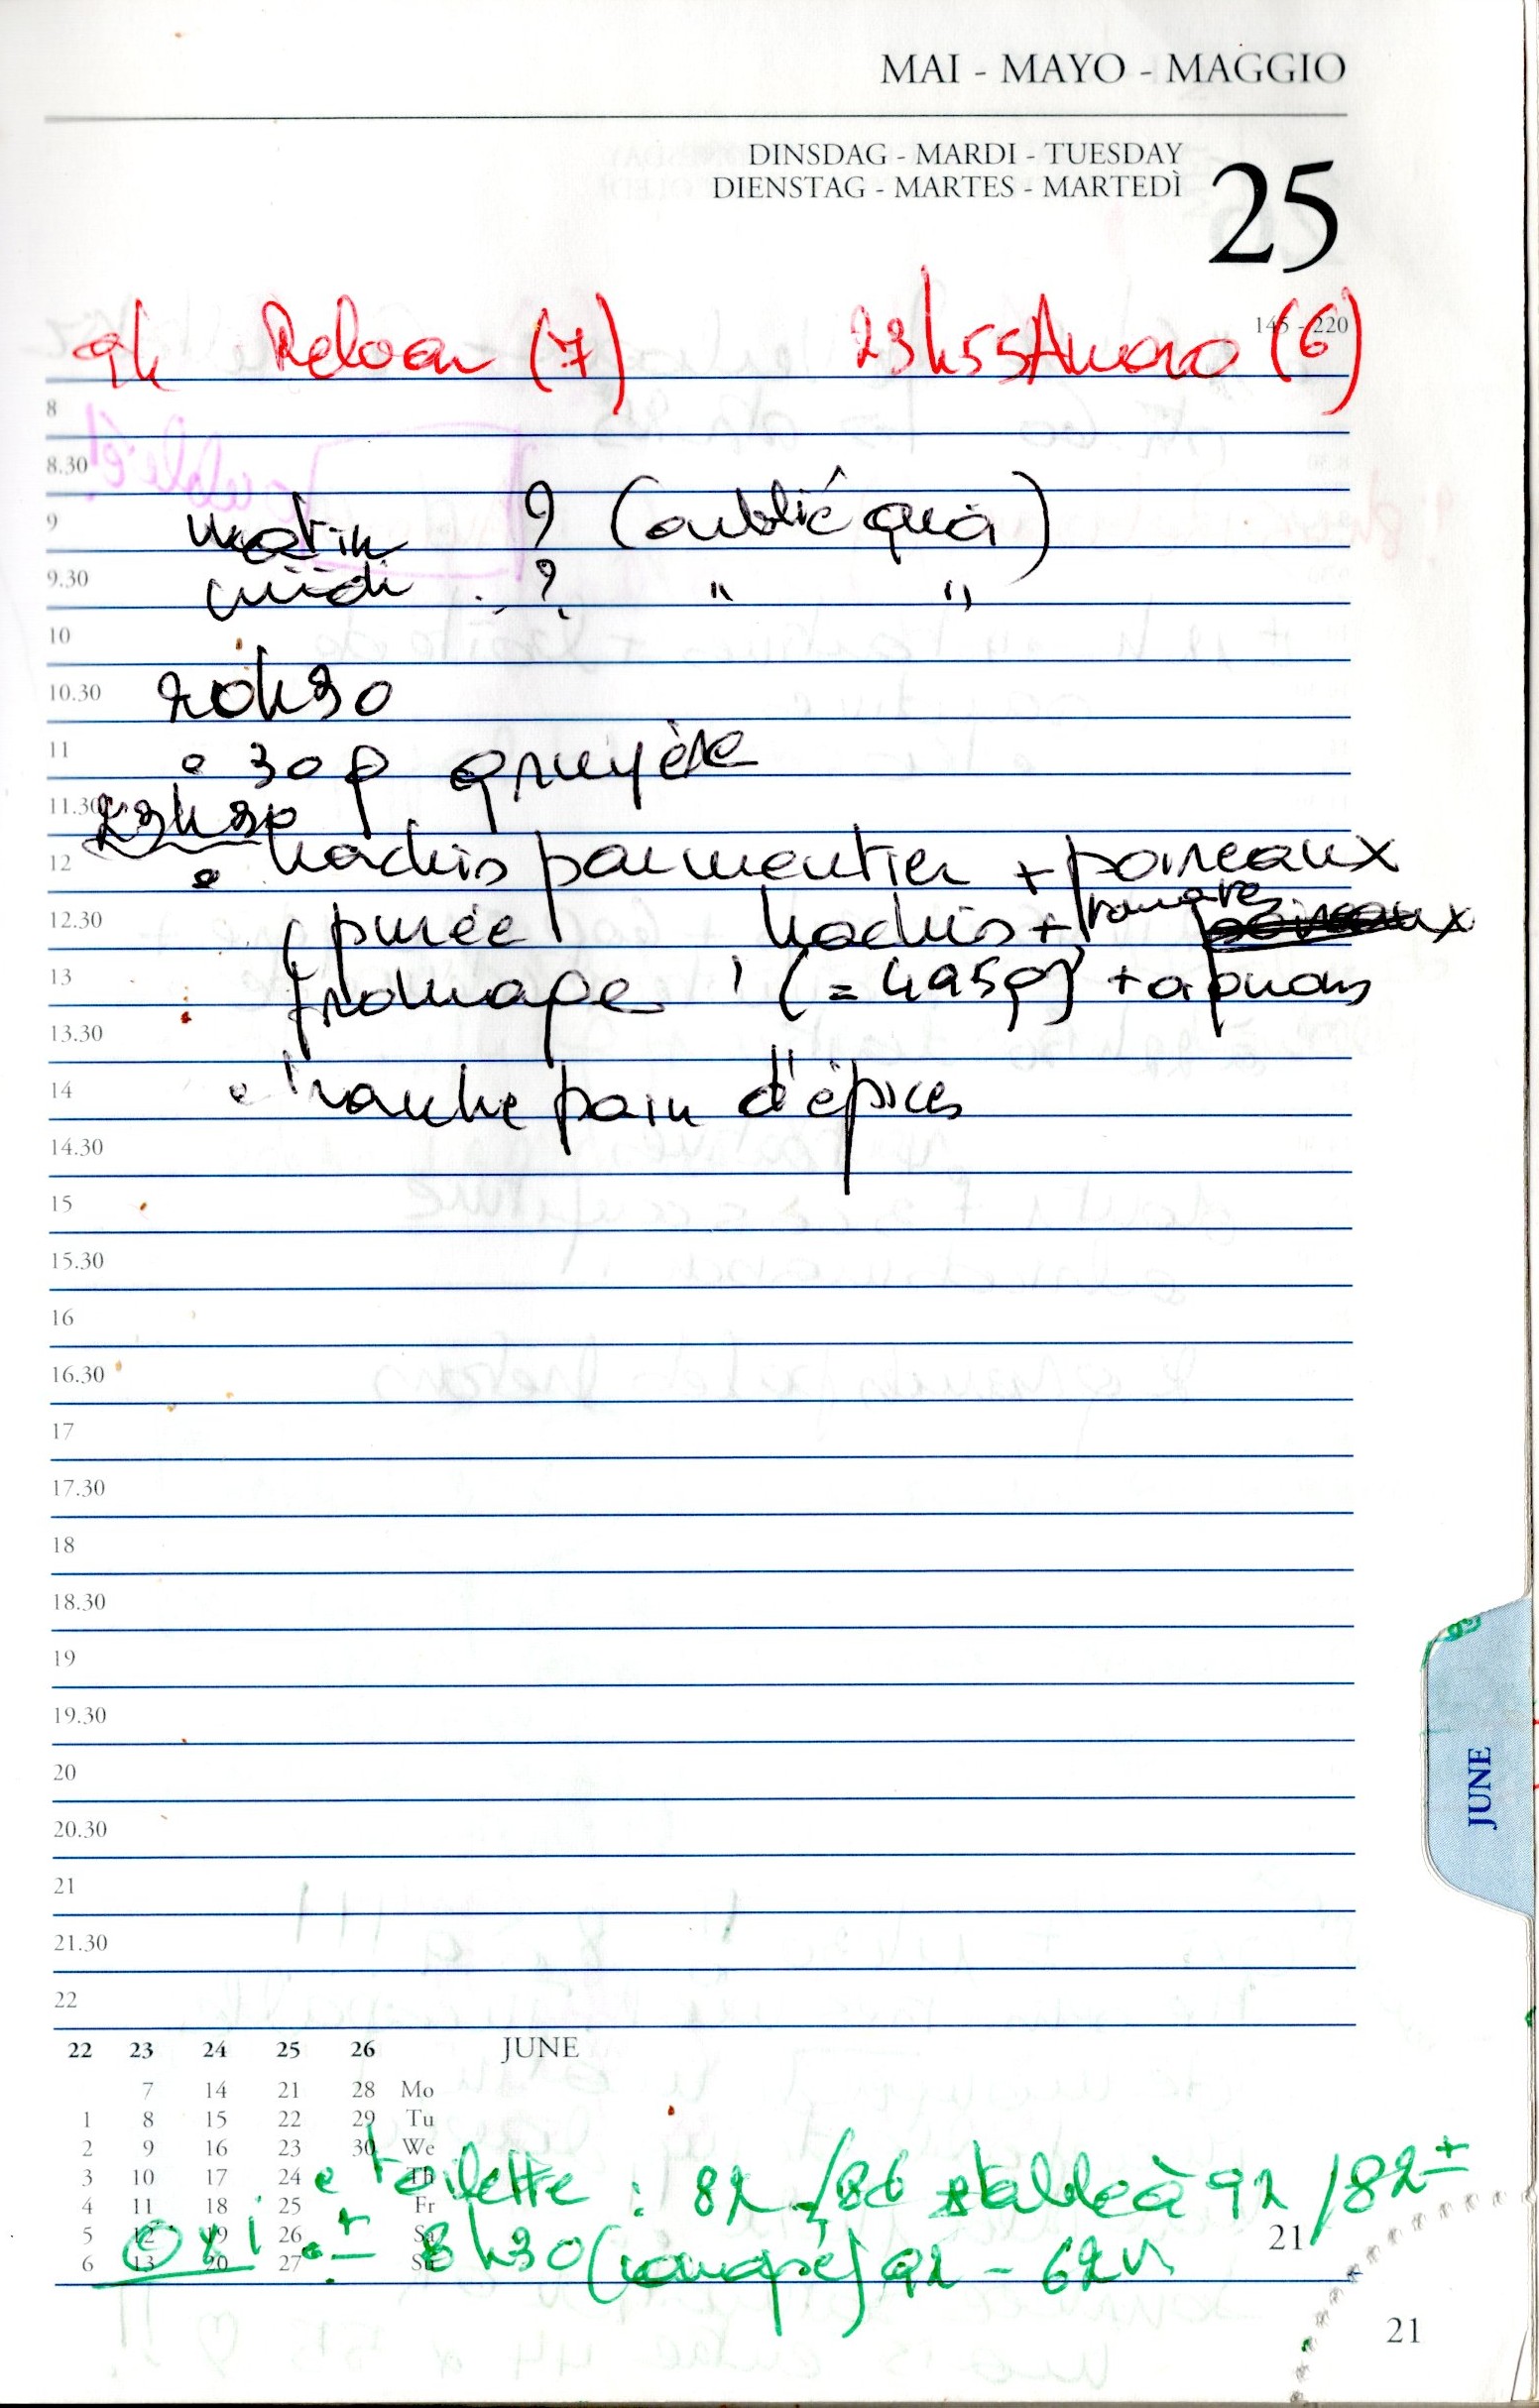 MAI - MAYO - MAGGIO
DINSDAG - MARDI - TUESDAY
DIENSTAG - MARTES - MARTEDÌ
25
145 - 220
9h (7) 23h55 (6)
8
8.30
9 matin ? (oublié quoi)
9.30 midi : ? " "
10
10.30 20h30
11 • 30 g gruyère
11.30 23h30
12 • hachis parmentier + poireaux
12.30 (purée hachis + tomates
13 fromage ! (= 495g) +
13.30
14 • tranche pain d'épices
14.30
15
15.30
16
16.30
17
17.30
18
18.30
19
19.30
20
20.30
21
21.30
22
JUNE
22 23 24 25 26 JUNE
7 14 21 28 Mo
1 8 15 22 29 Tu
2 9 16 23 30 We
3 10 17 24 Th
4 11 18 25 Fr
5 12 19 26 Sa
6 13 20 27 Su
• toilette : 82 /86 stable à 92 /82 ±
Oxi : • ± 8h30 (canapé) 92 - 62
21
21